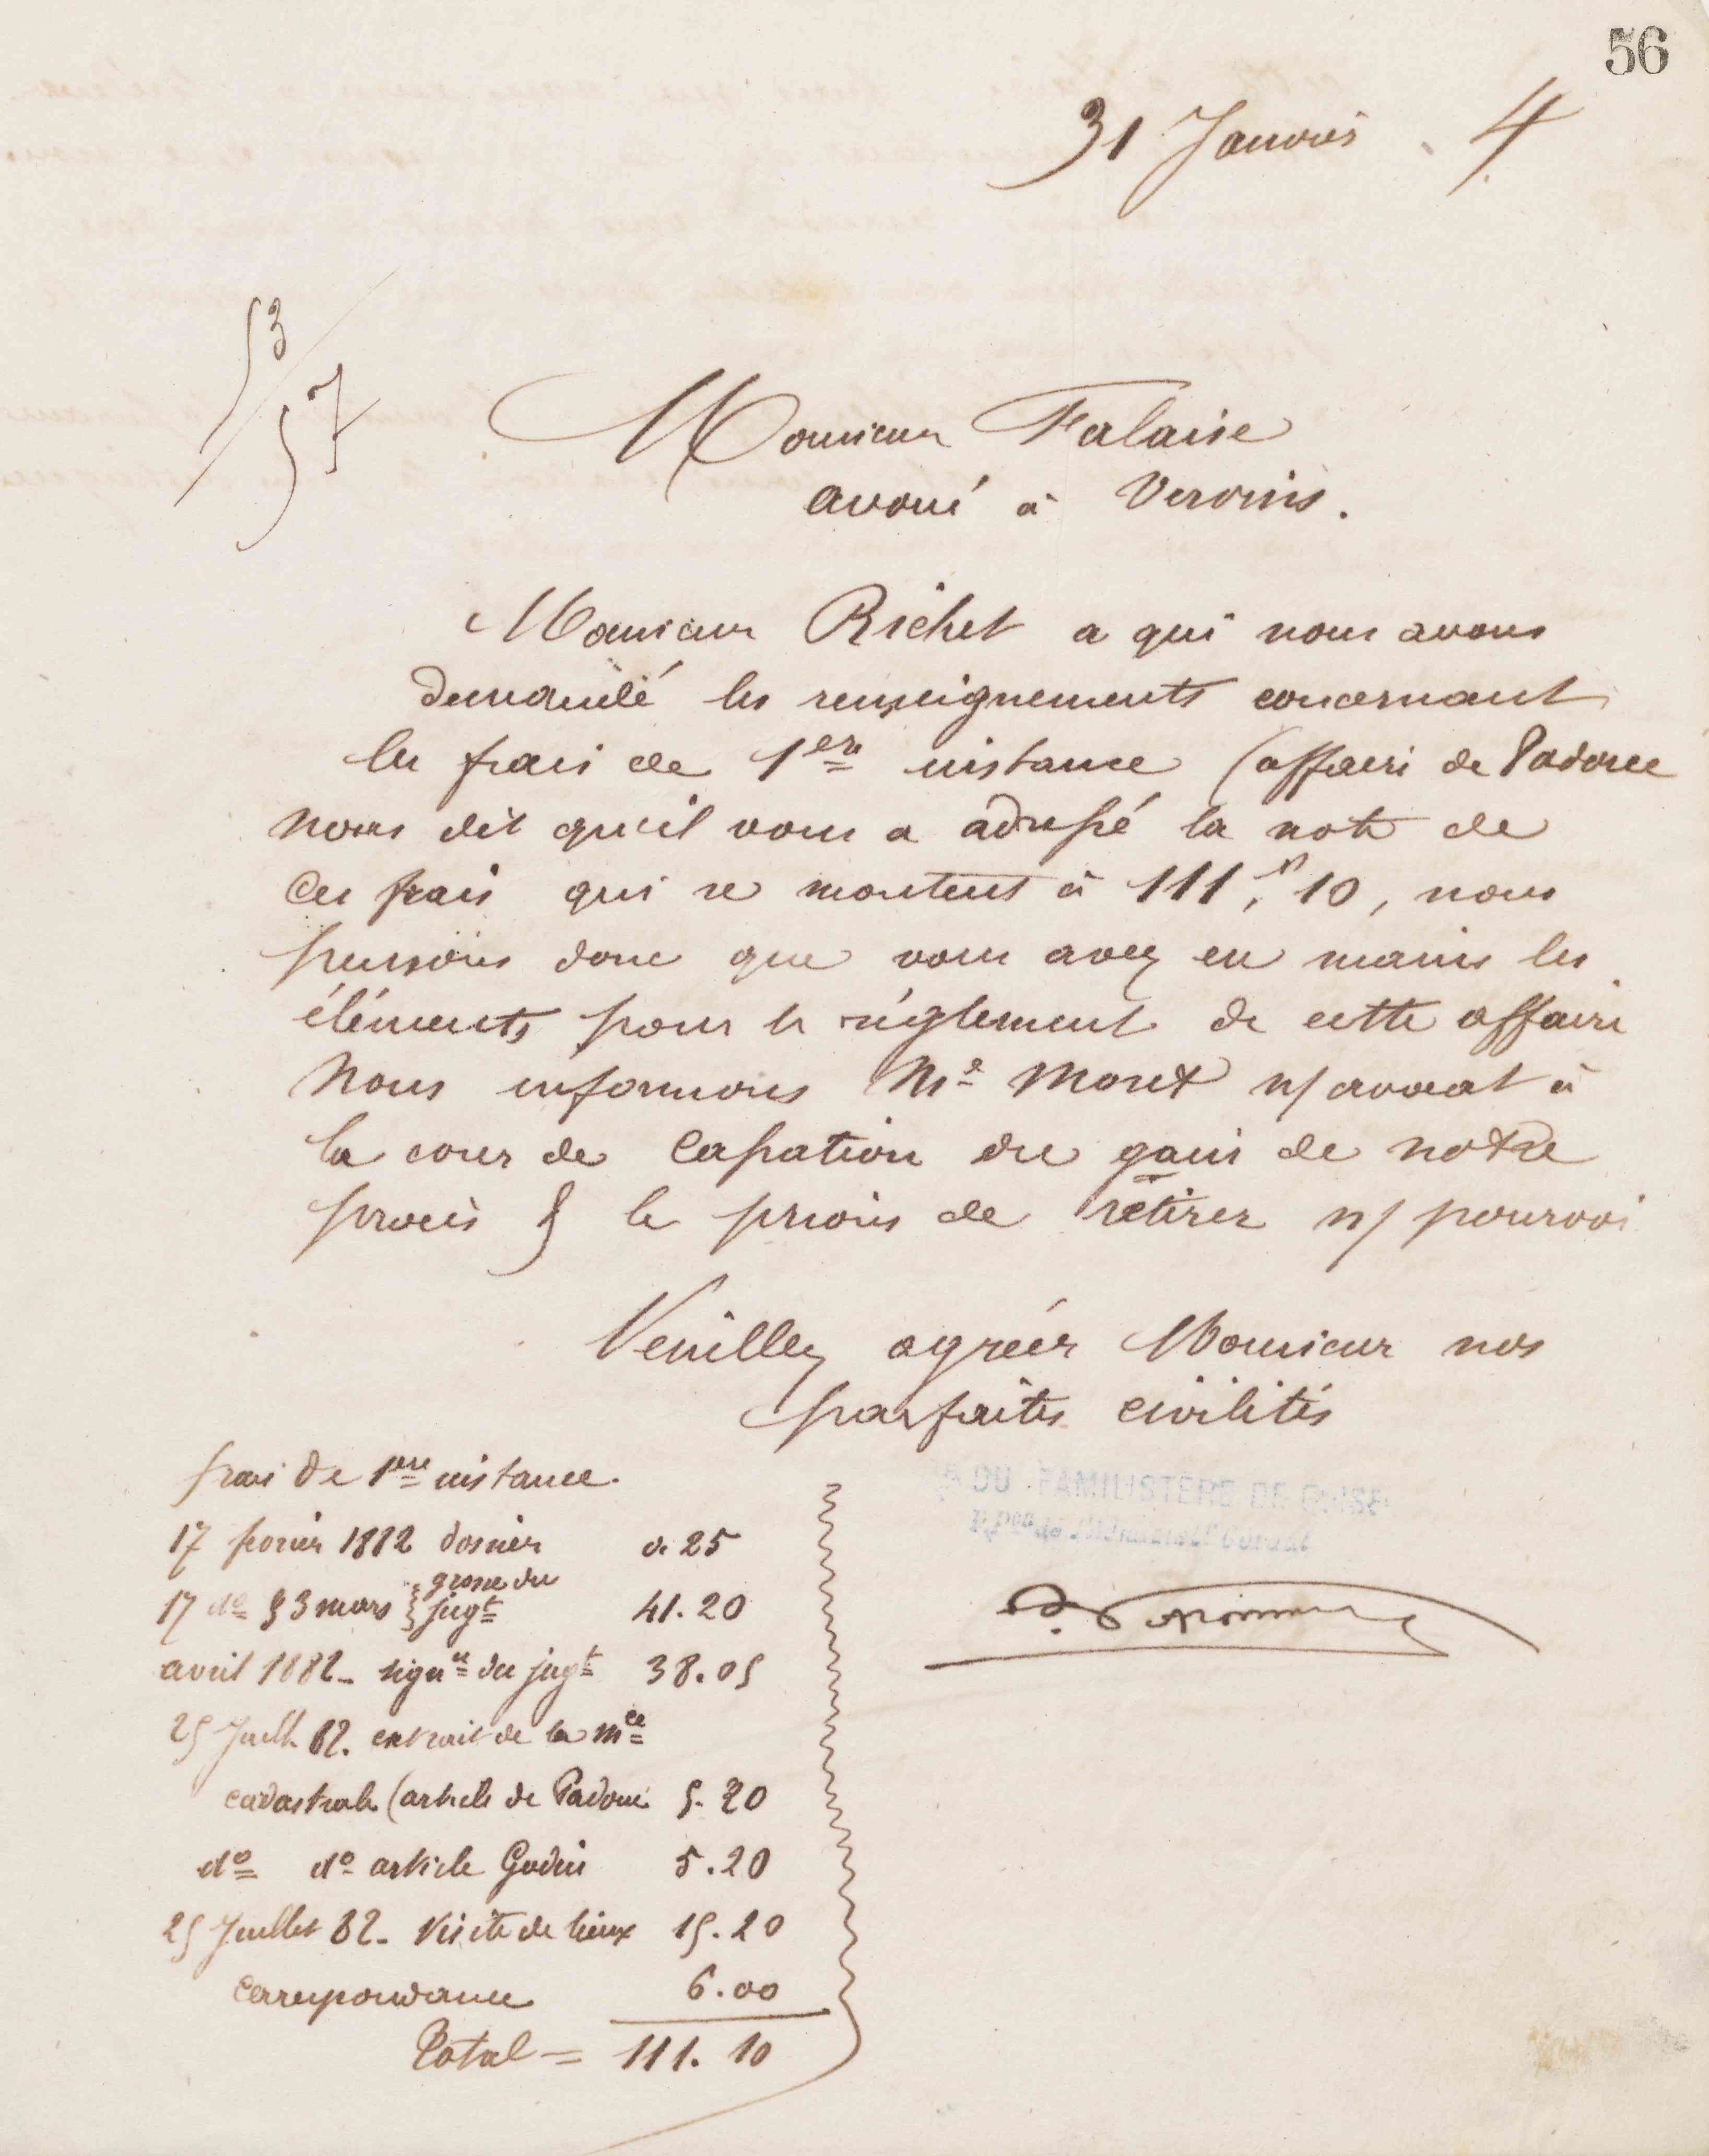 56
31 Janvier 4
53
57
Monsieur Falaise
avoué à Vervins.
Monsieur Richet a qui nous avons
demandé les renseignements concernant
les frais de 1ere instance (affaire de Padoue
nous dit qu'il vous a adressé la note de
ces frais qui se montent à 111,f 10, nous
pensons donc que vous avez en mains les
éléments pour le règlement de cette affaire
Nous informons Me Moret n/ avocat à
la cour de Cassation du gain de notre
procès & le prions de retirer n/ pourvoi
Veuillez agréer Monsieur nos
parfaites civilités
frais de 1ere instance.
17 février 1882 dossier 0.25
17 do & 3 mars grosse du
jugt 41.20
avril 1882 - du jugt 38.05
25 Juill. 82. extrait de la mce
cadastrale (article de Padoue 5.20
do do article Godin 5.20
25 Juillet 82 - Visite de lieux 15.20
Correspondance 6.00
Total = 111.10
DU FAMILISTÈRE DE GUISE